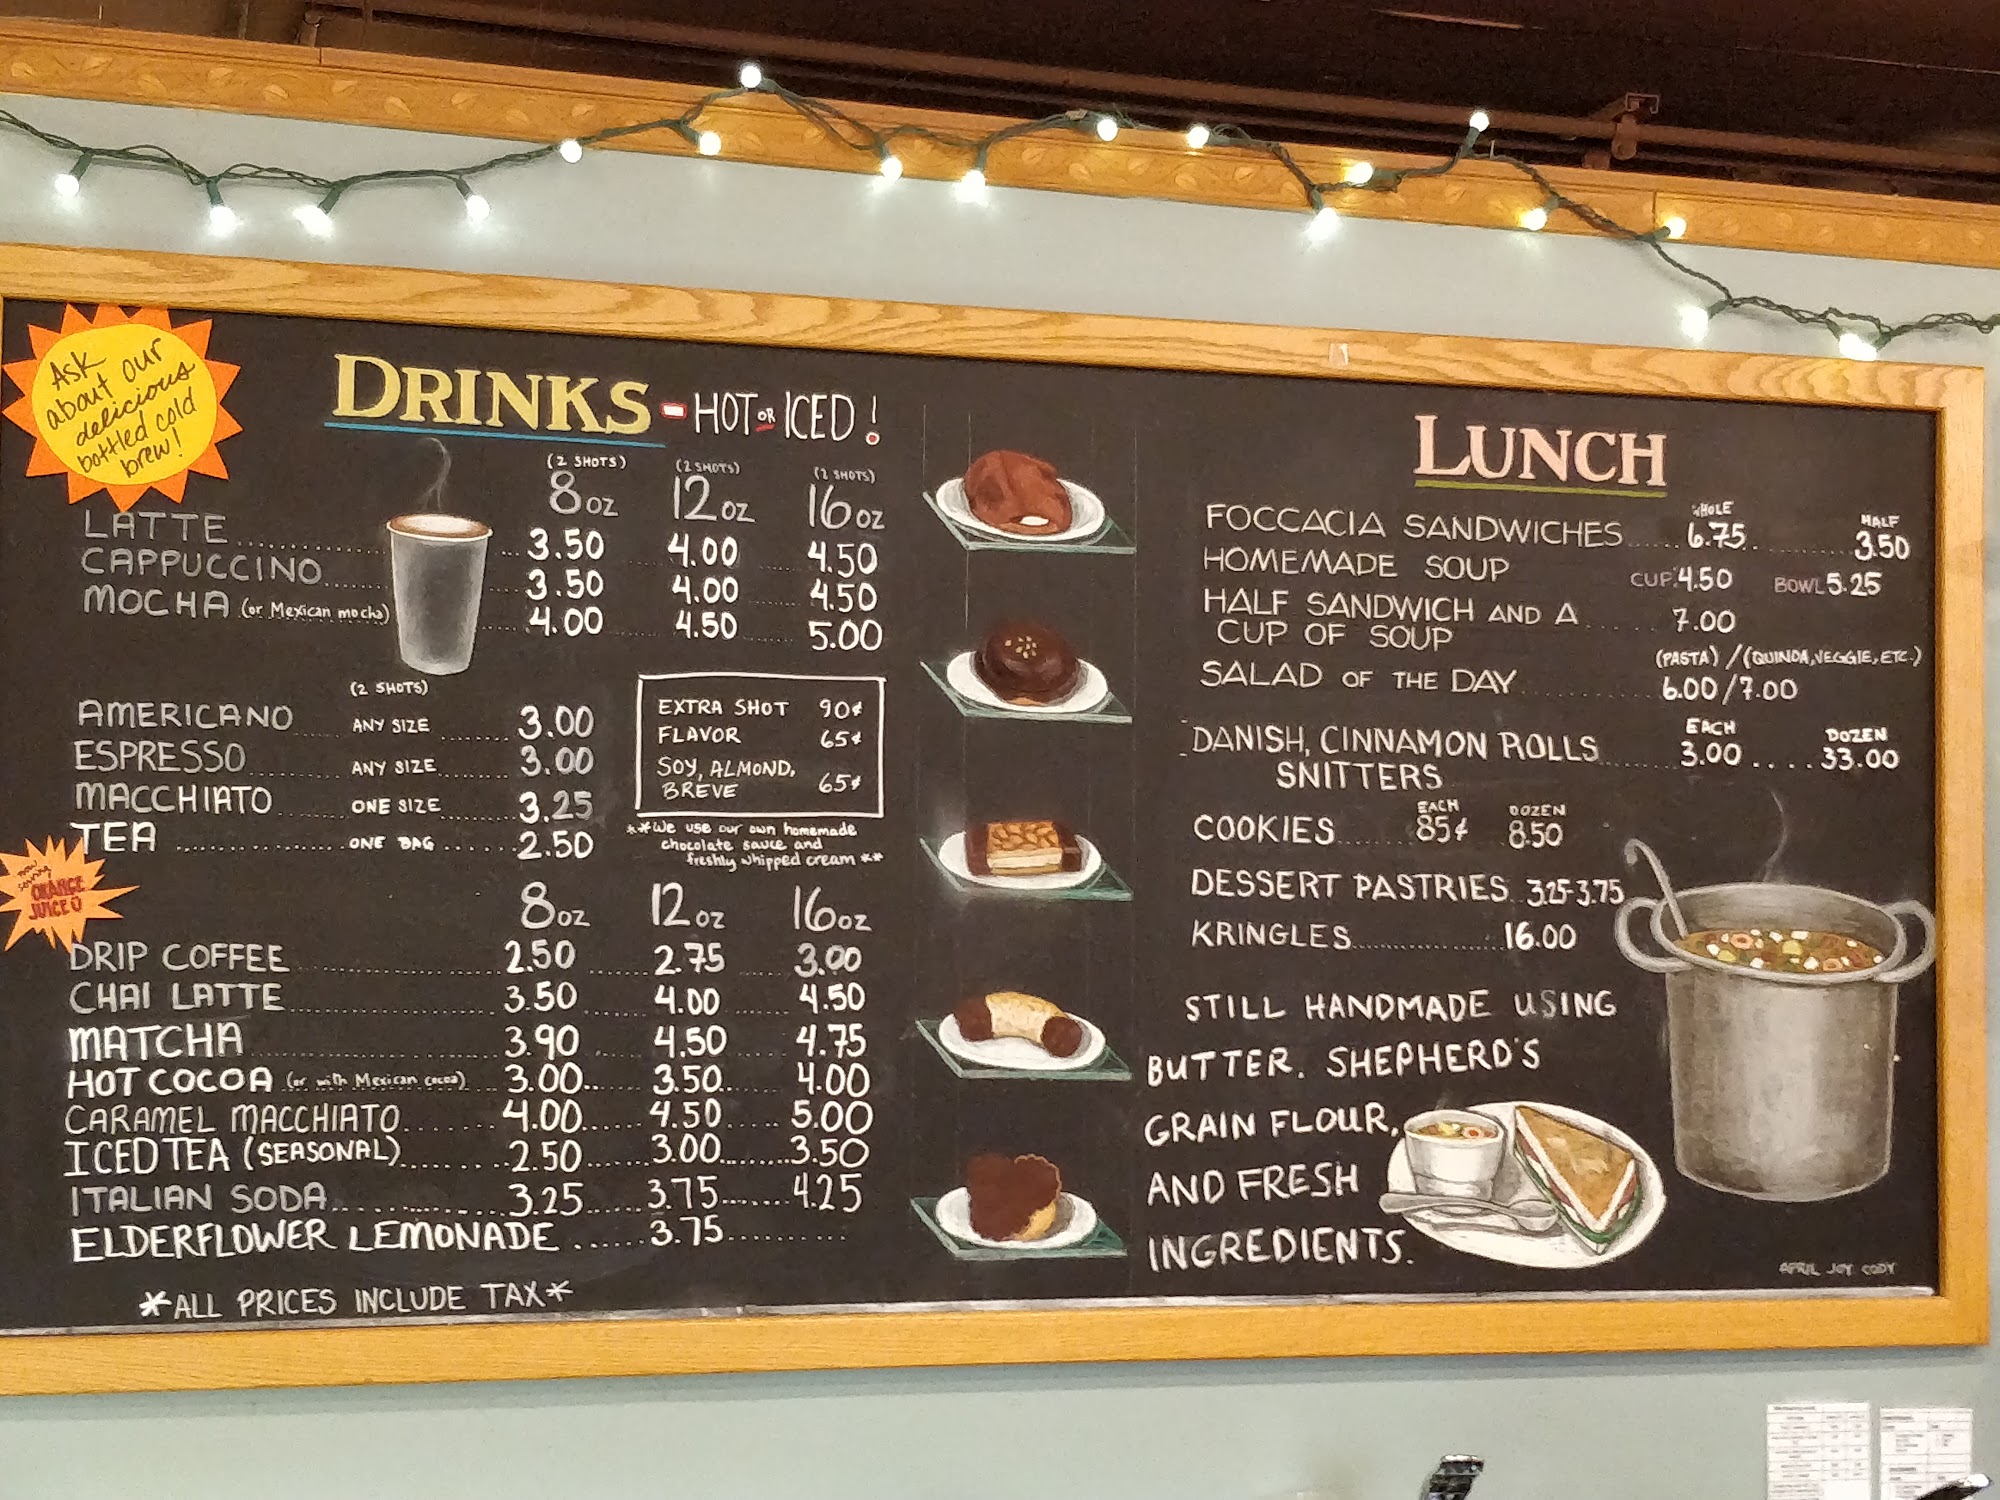 Ask
about our
delicious
bottled cold
brew!
DRINKS - HOT OR ICED!
(2 SHOTS) (2 SHOTS) (2 SHOTS)
8 OZ 12 OZ 16 OZ
LATTE 3.50 4.00 4.50
CAPPUCCINO 3.50 4.00 4.50
MOCHA (or Mexican mocha) 4.00 4.50 5.00
(2 SHOTS)
AMERICANO ANY SIZE 3.00
ESPRESSO ANY SIZE 3.00
MACCHIATO ONE SIZE 3.25
TEA ONE BAG 2.50
EXTRA SHOT 90¢
FLAVOR 65¢
SOY, ALMOND,
BREVE 65¢
**We use our own homemade
chocolate sauce and
freshly whipped cream **
now
serving
ORANGE
JUICE
8 OZ 12 OZ 16 OZ
DRIP COFFEE 2.50 2.75 3.00
CHAI LATTE 3.50 4.00 4.50
MATCHA 3.90 4.50 4.75
HOT COCOA (or with Mexican cocoa) 3.00 3.50 4.00
CARAMEL MACCHIATO 4.00 4.50 5.00
ICED TEA (SEASONAL) 2.50 3.00 3.50
ITALIAN SODA 3.25 3.75 4.25
ELDERFLOWER LEMONADE 3.75
*ALL PRICES INCLUDE TAX*
LUNCH
WHOLE HALF
FOCCACIA SANDWICHES 6.75 3.50
HOMEMADE SOUP CUP 4.50 BOWL 5.25
HALF SANDWICH AND A 7.00
CUP OF SOUP
(PASTA) / (QUINOA, VEGGIE, ETC.)
SALAD OF THE DAY 6.00/7.00
EACH DOZEN
DANISH, CINNAMON ROLLS 3.00 33.00
SNITTERS
EACH DOZEN
COOKIES 85¢ 8.50
DESSERT PASTRIES 3.25-3.75
KRINGLES 16.00
STILL HANDMADE USING
BUTTER. SHEPHERD'S
GRAIN FLOUR,
AND FRESH
INGREDIENTS.
APRIL JOY CODY